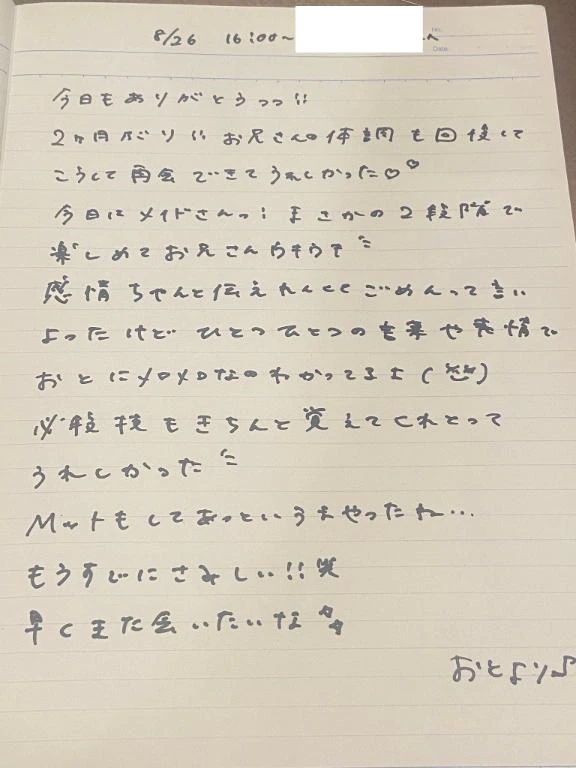 8/26 16:00~ へ
No.
Date
今日もありがとうっっ!!
2ヶ月ぶり!! お兄さんの体調も回復して
こうして再会できてうれしかった♡♡
今日はメイドさんっ! まさかの2段階で
楽しめてお兄さんウキウキ
感情ちゃんと伝えれんくてごめんって言い
よったけど ひとつひとつの言葉や表情で
おとにメロメロなのわかってるよ
必殺技もきちんと覚えてくれとって
うれしかった
Mットもしてあっというまやったね…
もうすでにさみしい!! 笑
早くまた会いたいな
おとより♪